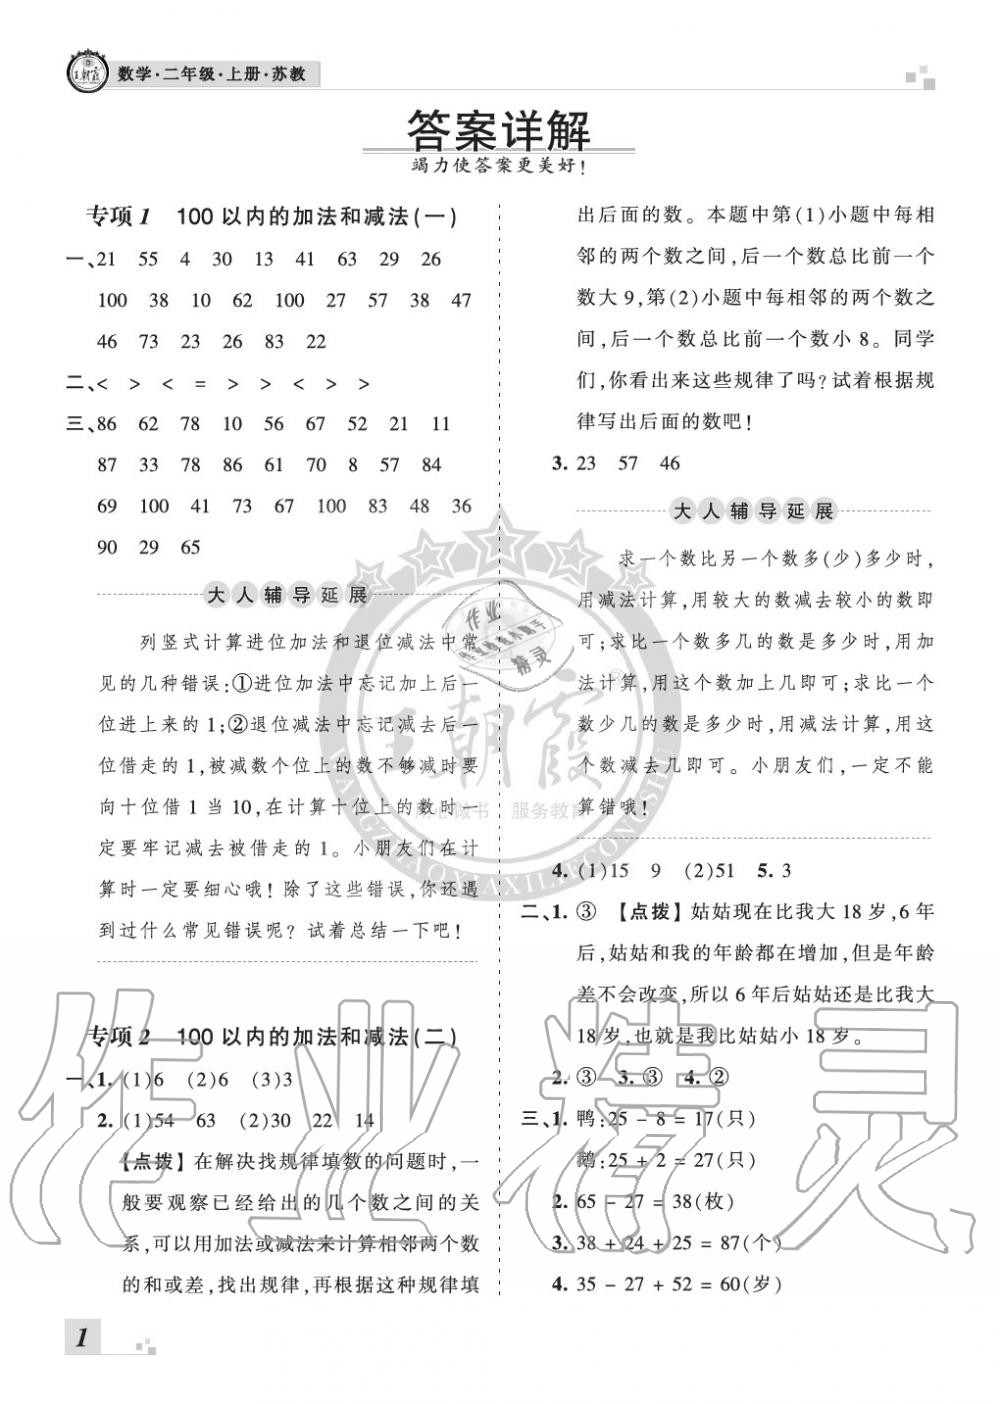 数学·二年级·上册·苏教
答案详解
竭力使答案更美好!
专项1 100以内的加法和减法(一)
一、21 55 4 30 13 41 63 29 26
100 38 10 62 100 27 57 38 47
46 73 23 26 83 22
二、< > < = > > < > >
三、86 62 78 10 56 67 52 21 11
87 33 78 86 61 70 8 57 84
69 100 41 73 67 100 83 48 36
90 29 65
大人辅导延展
列竖式计算进位加法和退位减法中常
见的几种错误:①进位加法中忘记加上后一
位进上来的1;②退位减法中忘记减去后一
位借走的1,被减数个位上的数不够减时要
向十位借1当10,在计算十位上的数时一
定要牢记减去被借走的1。小朋友们在计
算时一定要细心哦!除了这些错误,你还遇
到过什么常见错误呢?试着总结一下吧!
专项2 100以内的加法和减法(二)
一、1. (1)6 (2)6 (3)3
2. (1)54 63 (2)30 22 14
【点拨】在解决找规律填数的问题时,一
般要观察已经给出的几个数之间的关
系,可以用加法或减法来计算相邻两个数
的和或差,找出规律,再根据这种规律填
1
出后面的数。本题中第(1)小题中每相
邻的两个数之间,后一个数总比前一个
数大9,第(2)小题中每相邻的两个数之
间,后一个数总比前一个数小8。同学
们,你看出来这些规律了吗?试着根据规
律写出后面的数吧!
3. 23 57 46
大人辅导延展
求一个数比另一个数多(少)多少时,
用减法计算,用较大的数减去较小的数即
可;求比一个数多几的数是多少时,用加
法计算,用这个数加上几即可;求比一个
数少几的数是多少时,用减法计算,用这
个数减去几即可。小朋友们,一定不能
算错哦!
4. (1)15 9 (2)51 5. 3
二、1. ③ 【点拨】姑姑现在比我大18岁,6年
后,姑姑和我的年龄都在增加,但是年龄
差不会改变,所以6年后姑姑还是比我大
18岁,也就是我比姑姑小18岁。
2. ③ 3. ③ 4. ②
三、1. 鸭:25-8=17(只)
鹅:25+2=27(只)
2. 65-27=38(枚)
3. 38+24+25=87(个)
4. 35-27+52=60(岁)
王朝霞
用心做书 服务教育
作业精灵